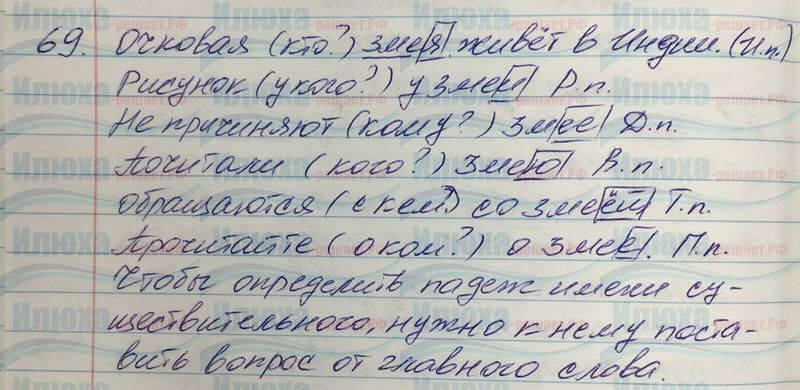 69. Очковая (кто?) змея живёт в Индии. (И.п.)
Рисунок (у кого?) у змеи Р.п.
Не причиняют (кому?) змее Д.п.
Почитали (кого?) змею В.п.
обращаются (с кем?) со змеёй Т.п.
Прочитайте (о ком?) о змее. П.п.
Чтобы определить падеж имени су-
ществительного, нужно к нему поста-
вить вопрос от главного слова.